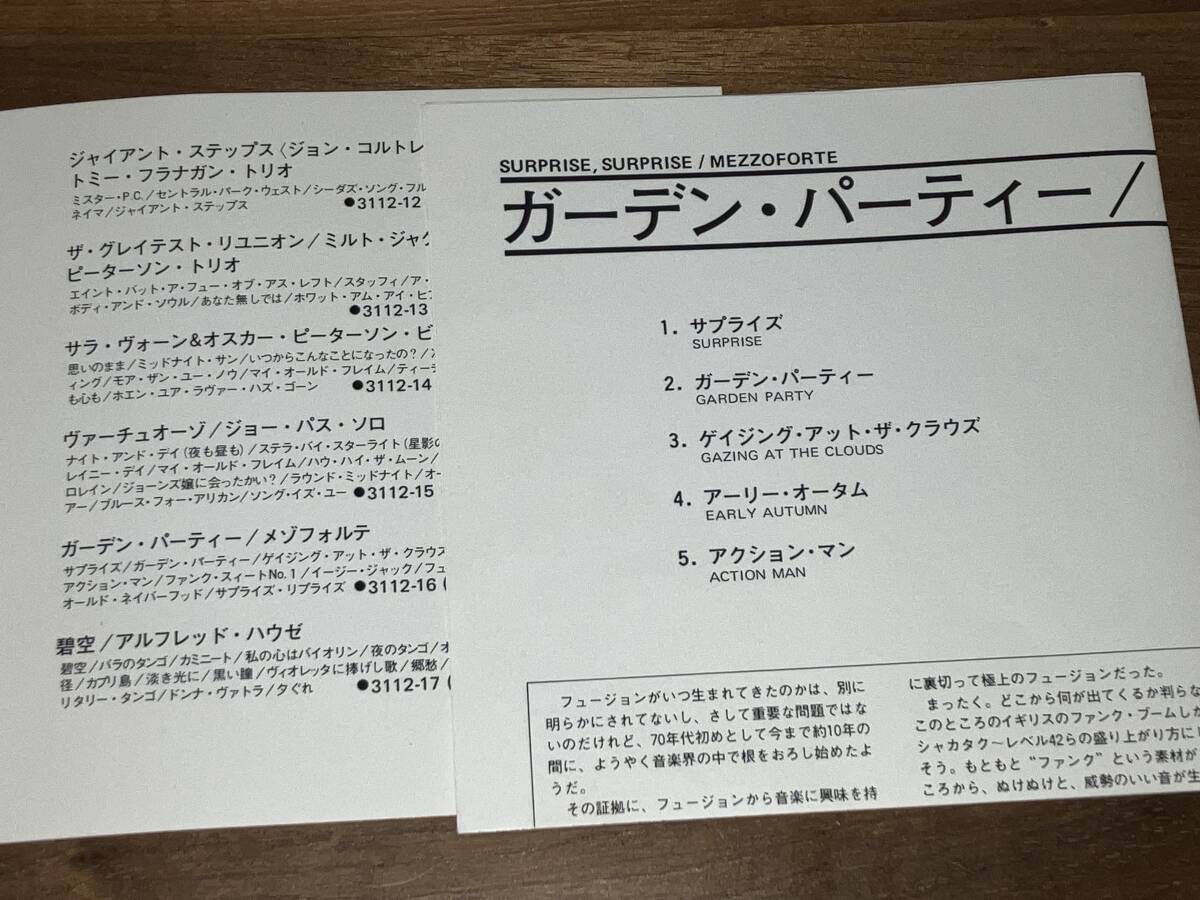 ジャイアント・ステップス〈ジョン・コルトレ
トミー・フラナガン・トリオ
ミスター・P.C./セントラル・パーク・ウェスト/シーダズ・ソング・フル
ネイマ/ジャイアント・ステップス ●3112-12
ザ・グレイテスト・リユニオン/ミルト・ジャク
ピーターソン・トリオ
エイント・バット・ア・フュー・オブ・アス・レフト/スタッフィ/ア・
ボディ・アンド・ソウル/あなた無しでは/ホワット・アム・アイ・ヒア
●3112-13
サラ・ヴォーン&オスカー・ピーターソン・ビ
思いのまま/ミッドナイト・サン/いつからこんなことになったの?/
ィング/モア・ザン・ユー・ノウ/マイ・オールド・フレイム/ティーチ
も心も/ホエン・ユア・ラヴァー・ハズ・ゴーン ●3112-14
ヴァーチュオーゾ/ジョー・パス・ソロ
ナイト・アンド・デイ(夜も昼も)/ステラ・バイ・スターライト(星影の
レイニー・デイ/マイ・オールド・フレイム/ハウ・ハイ・ザ・ムーン/
ロレイン/ジョーンズ嬢に会ったかい?/ラウンド・ミッドナイト/オー
アー/ブルース・フォー・アリカン/ソング・イズ・ユー ●3112-15
ガーデン・パーティー/メゾフォルテ
サプライズ/ガーデン・パーティー/ゲイジング・アット・ザ・クラウズ
アクション・マン/ファンク・スィートNo.1/イージー・ジャック/フュ
オールド・ネイバーフッド/サプライズ・リプライズ ●3112-16 (
碧空/アルフレッド・ハウゼ
碧空/バラのタンゴ/カミニート/私の心はバイオリン/夜のタンゴ/オ
径/カプリ島/淡き光に/黒い瞳/ヴィオレッタに捧げし歌/郷愁/
リタリー・タンゴ/ドンナ・ヴァトラ/夕ぐれ ●3112-17 (
SURPRISE, SURPRISE / MEZZOFORTE
ガーデン・パーティー/
1. サプライズ
SURPRISE
2. ガーデン・パーティー
GARDEN PARTY
3. ゲイジング・アット・ザ・クラウズ
GAZING AT THE CLOUDS
4. アーリー・オータム
EARLY AUTUMN
5. アクション・マン
ACTION MAN
フュージョンがいつ生まれてきたのかは、別に
明らかにされてないし、さして重要な問題ではな
いのだけれど、70年代初めとして今まで約10年の
間に、ようやく音楽界の中で根をおろし始めたよ
うだ。
その証拠に、フュージョンから音楽に興味を持
に裏切って極上のフュージョンだった。
まったく。どこから何が出てくるか判らな
このところのイギリスのファンク・ブームしか
シャカタク〜レベル42らの盛り上がり方にし
そう。もともと“ファンク”という素材が
ころから、ぬけぬけと、威勢のいい音が生